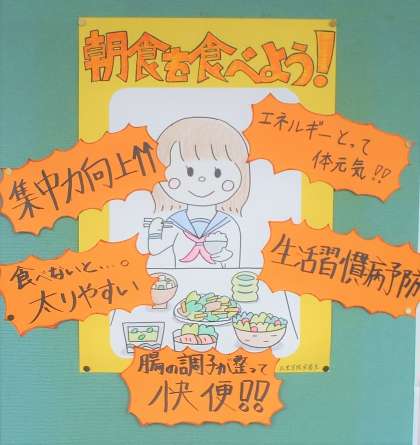 朝食を食べよう!
集中力向上↑↑
エネルギーとって
体元気!!
食べないと...。
太りやすい
生活習慣病予防
腸の調子が整って
快便!!